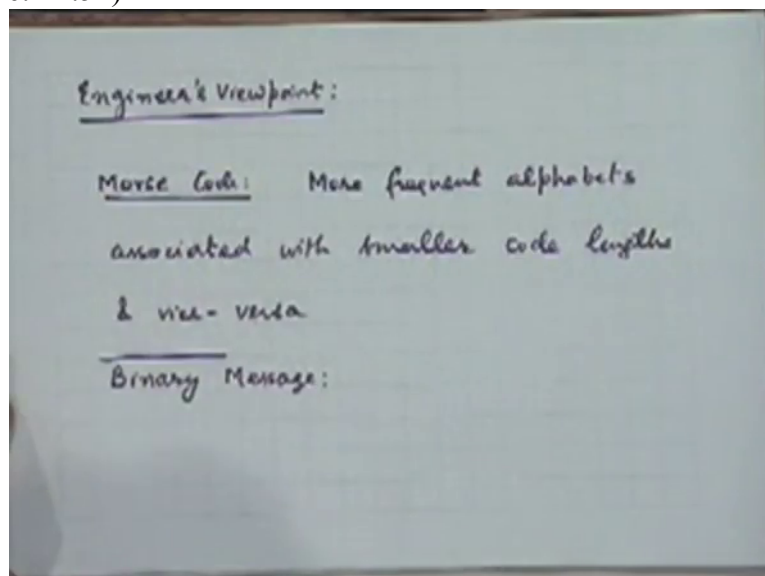 Engineer's Viewpoint:
Morse Code: More frequent alphabets
associated with smaller code lengths
& vice-versa
Binary Message: